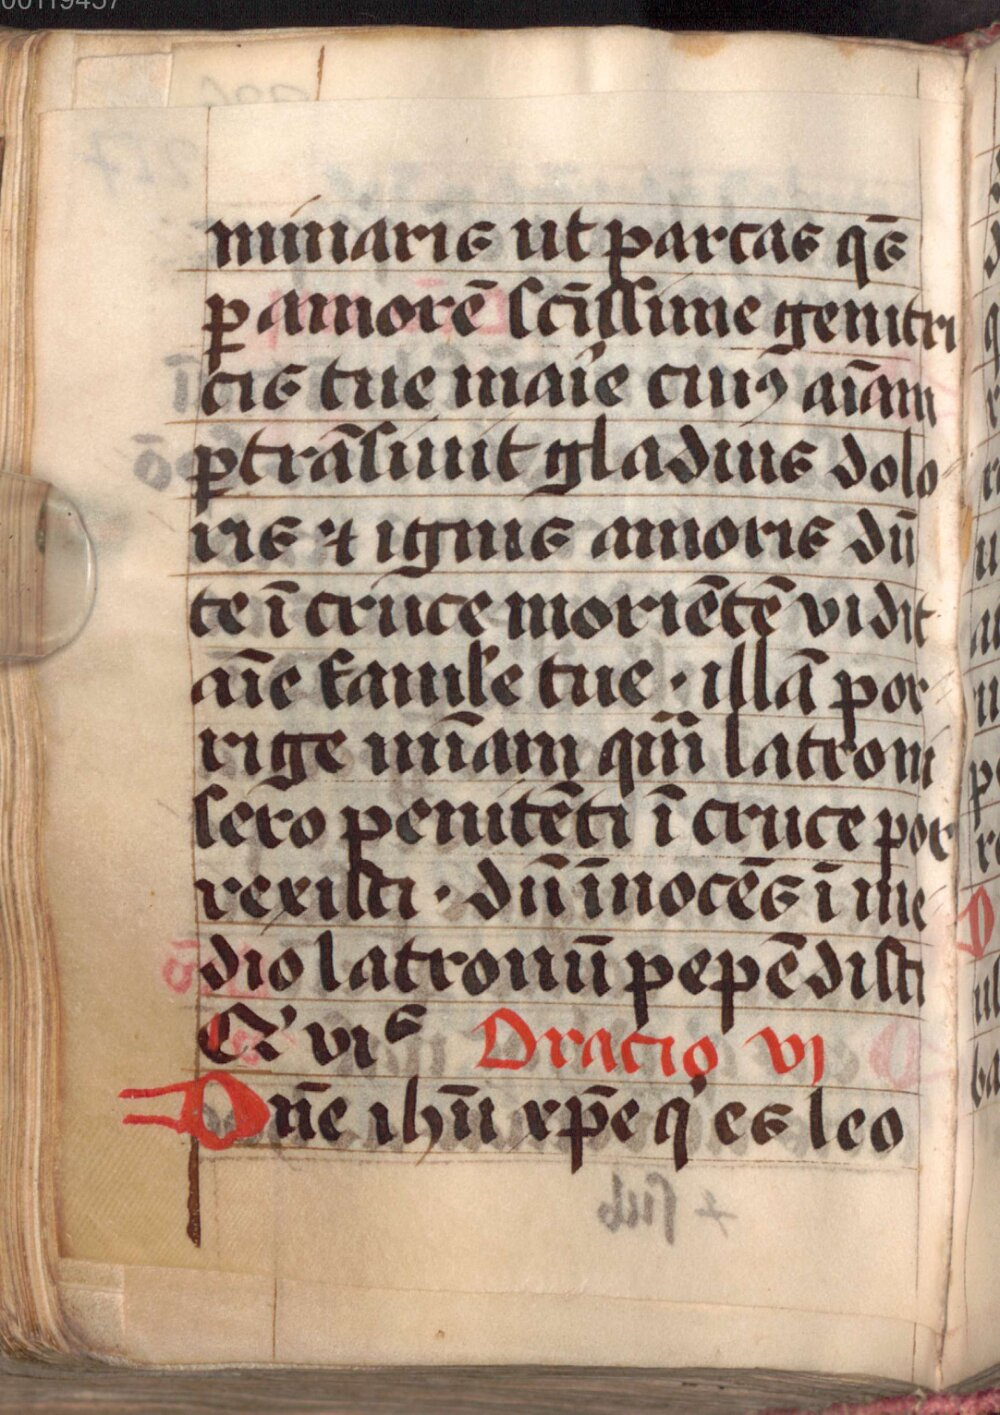 minaris ut parcas qs̄
ꝑ amorē scīssime genitri
cis tue marīe cuiꝰ aīam
ꝑtrāsiuit gladius dolo
ris ⁊ ignis amoris dū
te ī cruce moriētē vidit
aīe famule tue · illā por
rige mīam qm̄ latroni
sero penitēti ī cruce por
rexisti · dū īnocēs ī me
dio latronū pepēdisti
Oracio vj
Dn̄e ihū xp̄e q' es leo